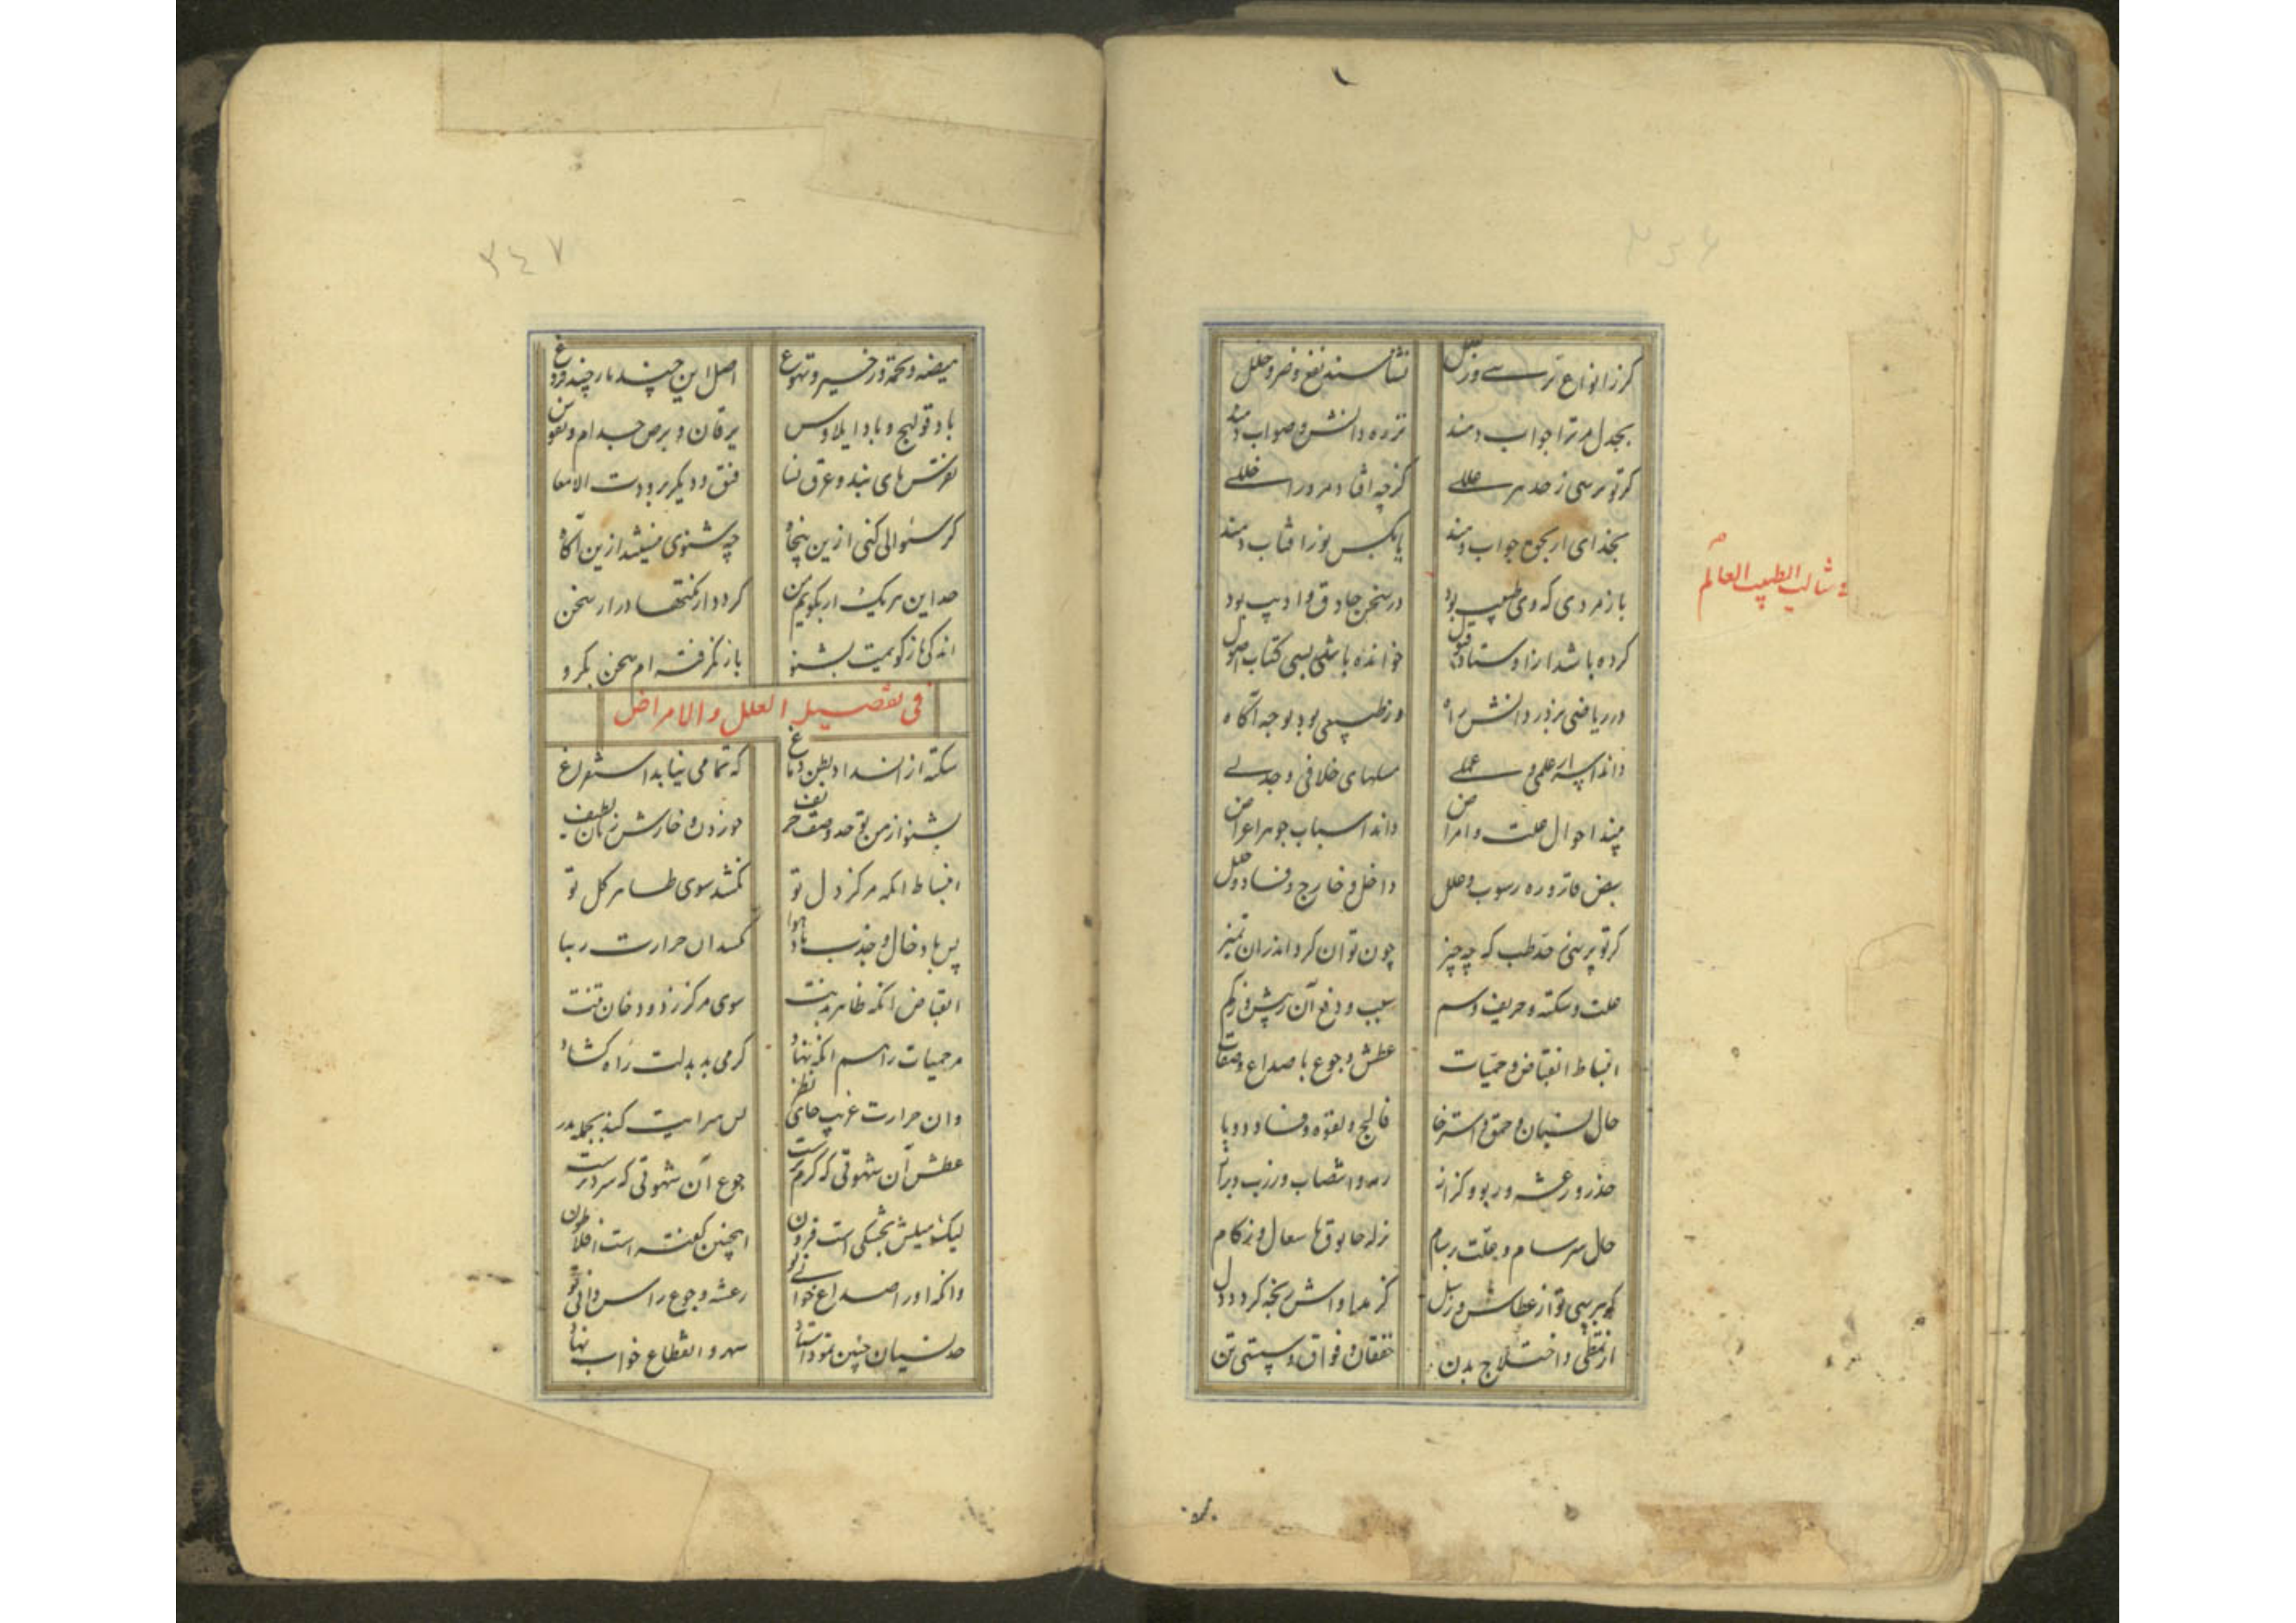 ۳۴۶
کر ز انواع ترسی و زلل نشناسند نفع و ضر و خلل
بجدل مر ترا جواب دهند نز ره دانش و صواب دهند
کر تو پرسی ز حد هر عللی کرچه افتاد مرورا خللی
بخدای ار بجمع جواب دهند یا بکس نور افتاب دهند
باز مردی که وی طبیب بود در سخن حاذق و ادیب بود
کرده باشد ز اوستاد قبول خوانده باشد بسی کتاب اصول
در ریاضی برد ز دانش راه وز طبیعی بود بوجه آکاه
داند اسرار علمی و عملی مسلهای خلافی و جدلی
بیند احوال علت و امراض داند اسباب جوهر اعراض
نبض قاروره رسوب و علل داخل و خارج و فساد و خلل
کر تو پرسی حد طب که چه چیز چون توان کرد اندران تمیز
علت و سکته و حریف و سم سبب و دفع آن ز بیش و ز کم
انبساط انقباض و حمیات عطش و جوع با صداع و صفات
حال نسیان و حمق و استرخا فالج و لقوه و فساد و وبا
خدر و رعشه و ربو و کزاز
حال سرسام و علت برسام نزله خانوقها سعال و زکام
از تمطی و اختلاج بدن خفقان و فواق و سستی تن
م
ثالب الطبیب العالم
۳۴۷
هیضه و تخمه و زحیر و تهوع اصل این چند بار چند فروع
باد قولنج و باد ایلاوس یرقان و برص جدام و نقوس
نقرس های بند و عرق نسا فتق و دیکر برودت الامعا
کر سئوالی کنی ازین پنجاه چه شنوی نیستند ازین آکاه
حد این هریک ار بکویم من کردد از نکتها دراز سخن
اندکی باز کویمت بشنو باز نکرفته ام سخن بکرو
فی تفصیل العلل و الامراض
سکته از انسداد بطن دماغ که تمامی نیابد استفراغ
بشنو از من تو حد و وصف حریف خوردن و خارش زبان لطیف
انبساط انکه مرکز دل تو کشد سوی ظاهر کل تو
پس بادخال و جذب باد هوا
انقباض انکه ظاهر بدنت سوی مرکز ز دود خان تنت
مر حمیات را هم انکه نهاد کرمی بد بدلت راه کشاد
وان حرارت غریب جای نظر بس سرایت کند بجمله بدر
عطش آن شهوتی که کرم ترست جوع آن شهوتی که سردترست
لیک میلش بخشکی است فزون اینچنین کفته است افلاطون
وانکه او را صداع خوانی تو رعشه و جوع راس دانی تو
حد نسیان چنین نمود استاد سهر و انقطاع خواب نهاد